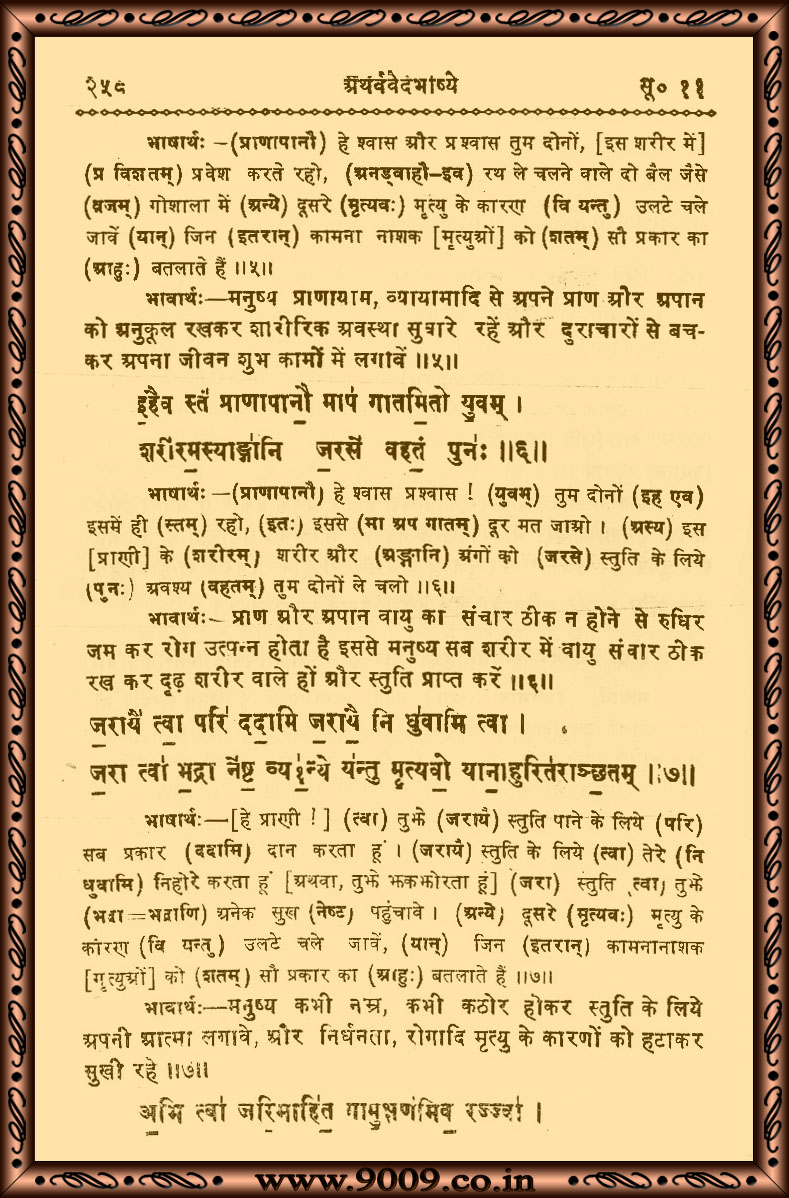 २५८ अथर्ववेदभाष्ये सू० ११
भाषार्थः—(प्राणापानौ) हे श्वास और प्रश्वास तुम दोनों, [इस शरीर में]
(प्र विशतम्) प्रवेश करते रहो, (अनड्वाहौ-इव) रथ ले चलने वाले दो बैल जैसे
(व्रजम्) गोशाला में (अन्ये) दूसरे (मृत्यवः) मृत्यु के कारण (वि यन्तु) उलटे चले
जावें (यान्) जिन (इतरान्) कामना नाशक [मृत्युओं] को (शतम्) सौ प्रकार का
(आहुः) बतलाते हैं ॥५॥
भावार्थः—मनुष्य प्राणायाम, व्यायामादि से अपने प्राण और अपान
को अनुकूल रखकर शारीरिक अवस्था सुधारे रहें और दुराचारों से बच-
कर अपना जीवन शुभ कामों में लगावें ॥५॥
इ॒हैव स्तं॑ प्राणापानौ॒ माप॑ गातमि॒तो यु॒वम् ।
शरी॑रम॒स्याङ्गा॑नि ज॒रसे॑ वहतं॒ पुनः॑ ॥६॥
भाषार्थः—(प्राणापानौ) हे श्वास प्रश्वास ! (युवम्) तुम दोनों (इह एव)
इसमें ही (स्तम्) रहो, (इतः) इससे (मा अप गातम्) दूर मत जाओ । (अस्य) इस
[प्राणी] के (शरीरम्) शरीर और (अङ्गानि) अंगों को (जरसे) स्तुति के लिये
(पुनः) अवश्य (वहतम्) तुम दोनों ले चलो ॥६॥
भावार्थः—प्राण और अपान वायु का संचार ठीक न होने से रुधिर
जम कर रोग उत्पन्न होता है इससे मनुष्य सब शरीर में वायु संचार ठीक
रख कर दृढ़ शरीर वाले हों और स्तुति प्राप्त करें ॥६॥
ज॒रायै॑ त्वा॒ परि॑ ददामि ज॒रायै॒ नि धु॑वामि त्वा ।
ज॒रा त्वा॑ भ॒द्रा ने॑ष्ट॒ व्य१॒॑न्ये य॑न्तु मृ॒त्यवो॒ याना॒हुरित॑राञ्छ॒तम् ॥७॥
भाषार्थः—[हे प्राणी !] (त्वा) तुझे (जरायै) स्तुति पाने के लिये (परि)
सब प्रकार (ददामि) दान करता हूं । (जरायै) स्तुति के लिये (त्वा) तेरे (नि
धुवामि) निहोरे करता हूं [अथवा, तुझे झकझोरता हूं] (जरा) स्तुति (त्वा) तुझे
(भद्रा=भद्राणि) अनेक सुख (नेष्ट) पहुंचावे । (अन्ये) दूसरे (मृत्यवः) मृत्यु के
कारण (वि यन्तु) उलटे चले जावें, (यान्) जिन (इतरान्) कामनानाशक
[मृत्युओं] को (शतम्) सौ प्रकार का (आहुः) बतलाते हैं ॥७॥
भावार्थः—मनुष्य कभी नम्र, कभी कठोर होकर स्तुति के लिये
अपनी आत्मा लगावे, और निर्धनता, रोगादि मृत्यु के कारणों को हटाकर
सुखी रहे ॥७॥
अ॒भि त्वा॑ जरि॒माहि॑त॒ गामु॒क्षण॑मिव॒ रज्ज्वा॑ ।
www.9009.co.in